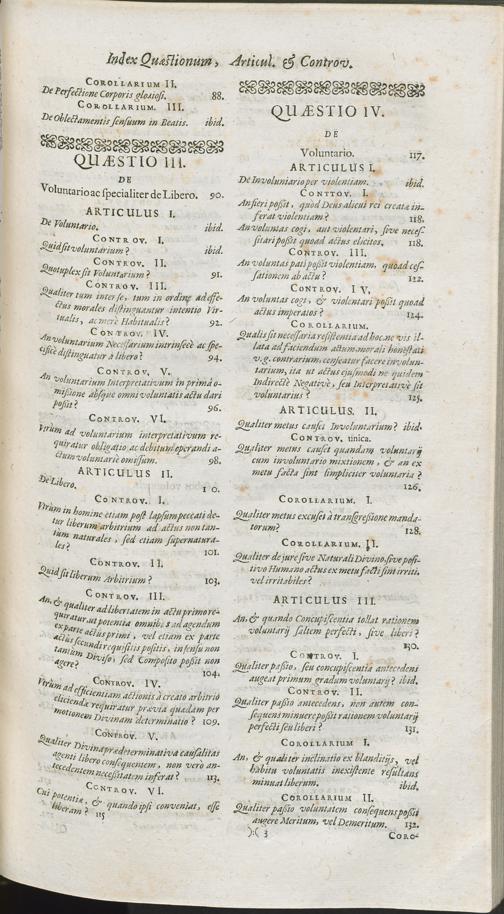 Index Quæstionum, Articul. & Controv.
COROLLARIUM II.
De Perfectione Corporis gloriosi. 88.
COROLLARIUM. III.
De Oblectamentis sensuum in Beatis. ibid.
QUÆSTIO III.
DE
Voluntario ac specialiter de Libero. 90.
ARTICULUS I.
De Voluntario. ibid.
CONTROV. I.
Quid sit voluntarium? ibid.
CONTROV. II.
Quotuplex sit Voluntarium? 91.
CONTROV. III.
Qualiter tum inter se, tum in ordine ad effe-
ctus morales distinguantur intentio Vir-
tualis, ac merè Habitualis? 92.
CONTROV. IV.
An voluntarium Necessarium intrinsecè ac spe-
cificè distinguatur à libero? 94.
CONTROV. V.
An voluntarium Interpretativum in prima o-
missione absque omni voluntatis actu dari
possit? 96.
CONTROV. VI.
Utrum ad voluntarium interpretativum re-
quiratur obligatio, ac debitum operandi a-
ctum voluntariè omissum. 98.
ARTICULUS II.
De Libero. 1 0.
CONTROV. I.
Utrum in homine etiam post lapsum peccati de-
tur liberum arbitrium ad actus non tan-
tùm naturales, sed etiam supernatura-
les? 101.
CONTROV. II.
Quid sit liberum Arbitrium? 103.
CONTROV. III.
An, & qualiter ad libertatem in actu primo re-
quiratur, ut potentia omnibus ad agendum
ex parte actus primi, vel etiam ex parte
actus secundi requisitis positis, in sensu non
tantum Diviso, sed Composito possit non
agere? 104.
CONTROV. IV.
Utrum ad efficientiam actionis à creato arbitrio
eliciendæ requiratur prævia quædam per
motionem Divinam determinatio? 109.
CONTROV. V.
Qualiter Divina prædeterminativa causalitas
agenti libero consequentem, non verò an-
tecedentem necessitatem inferat? 113.
CONTROV. VI.
Cui potentiæ, & quando ipsi conveniat, esse
liberam? 115
QUÆSTIO IV.
DE
Voluntario. 117.
ARTICULUS I.
De Involuntario per violentiam. ibid.
CONTROV. I.
An fieri possit, quòd Deus alicui rei creatæ in-
ferat violentiam? 118.
An voluntas cogi, aut violentari, sive neces-
sitari possit quoad actus elicitos. 118.
CONTROV. III.
An voluntas pati possit violentiam, quoad ces-
sationem ab actu? 122.
CONTROV. IV,
An voluntas cogi, & violentari possit quoad
actus imperatos? 124.
COROLLARIUM.
Qualis sit necessaria resistentia ad hoc, ne vis il-
lata ad faciendum actum morali honestati
v.g. contrarium, censeatur facere involun-
tarium, ita ut actus ejusmodi ne quidem
Indirectè Negativè, seu Interpretativè sit
voluntarius? 125.
ARTICULUS. II.
Qualiter metus causet Involuntarium? ibid.
CONTROV. unica.
Qualiter metus causet quandam voluntarij
cum involuntario mixtionem, & an ex
metu facta sint simpliciter voluntaria?
126.
COROLLARIUM. I.
Qualiter metus excuset à transgressione manda-
torum? 128.
COROLLARIUM. II.
Qualiter de jure sive Naturali Divino, sive posi-
tivo Humano actus ex metu facti sint irriti,
vel irritabiles?
ARTICULUS III.
An, & quando Concupiscentia tollat rationem
voluntarij saltem perfecti, sive liberi?
130.
CONTROV. I.
Qualiter passio, seu concupiscentia antecedens
augeat primum gradum voluntarij? ibid.
CONTROV. II.
Qualiter passio antecedens, non autem con-
sequens minuere possit rationem voluntarij
perfecti seu liberi? 131.
COROLLARIUM I.
An, & qualiter inclinatio ex blanditijs, vel
habitu voluntatis inexistente resultans
minuat liberum. ibid.
COROLLARIUM II.
Qualiter passio voluntatem consequens possit
augere Meritum, vel Demeritum. 132.
):( 3
CORO-